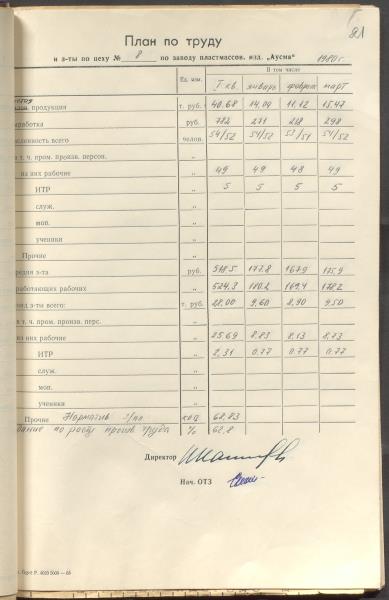 81
План по труду
и з-ты по цеху № 8 по заводу пластмассов. изд. „Аусма" 1980 г.
Ед. изм. В том числе
I кв. январь февраль март
продукции т. руб. 40.68 14.09 11.12 15.47
работка руб. 782 271 218 298
ленность всего челов. 54/52 54/52 53/51 54/52
в т. ч. пром. произв. персон. „
из них рабочие „ 49 49 48 49
ИТР „ 5 5 5 5
служ. „
моп. „
ученики „
Прочие „
редняя з-та руб. 518.5 177.8 167.9 175.9
работающих рабочих „ 524.3 180.2 169.4 178.2
онд з-ты всего: т. руб. 28.00 9.60 8.90 9.50
в т. ч. пром. произв. перс. „
из них рабочие „ 25.69 8.83 8.13 8.73
ИТР „ 2.31 0.77 0.77 0.77
служ. „
моп. „
ученики „
Прочие Норматив з/пл коп 68.83
дание по росту произв. труда % 62.8
Директор
Нач. ОТЗ